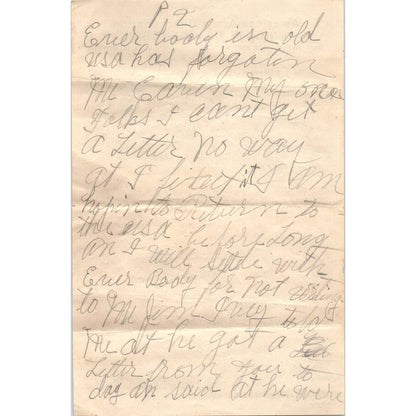 P 2
Ever body in old
usa has forgoten
Me Earen My one
Folks I cant get
a Letter no way
at I fixey it I am
hopin to Return to
the usa before Long
an I will settle with
Ever Body for not writing
to Me Jim Ivey to lo
Me at he got a
Letter from you to
day an said at he were